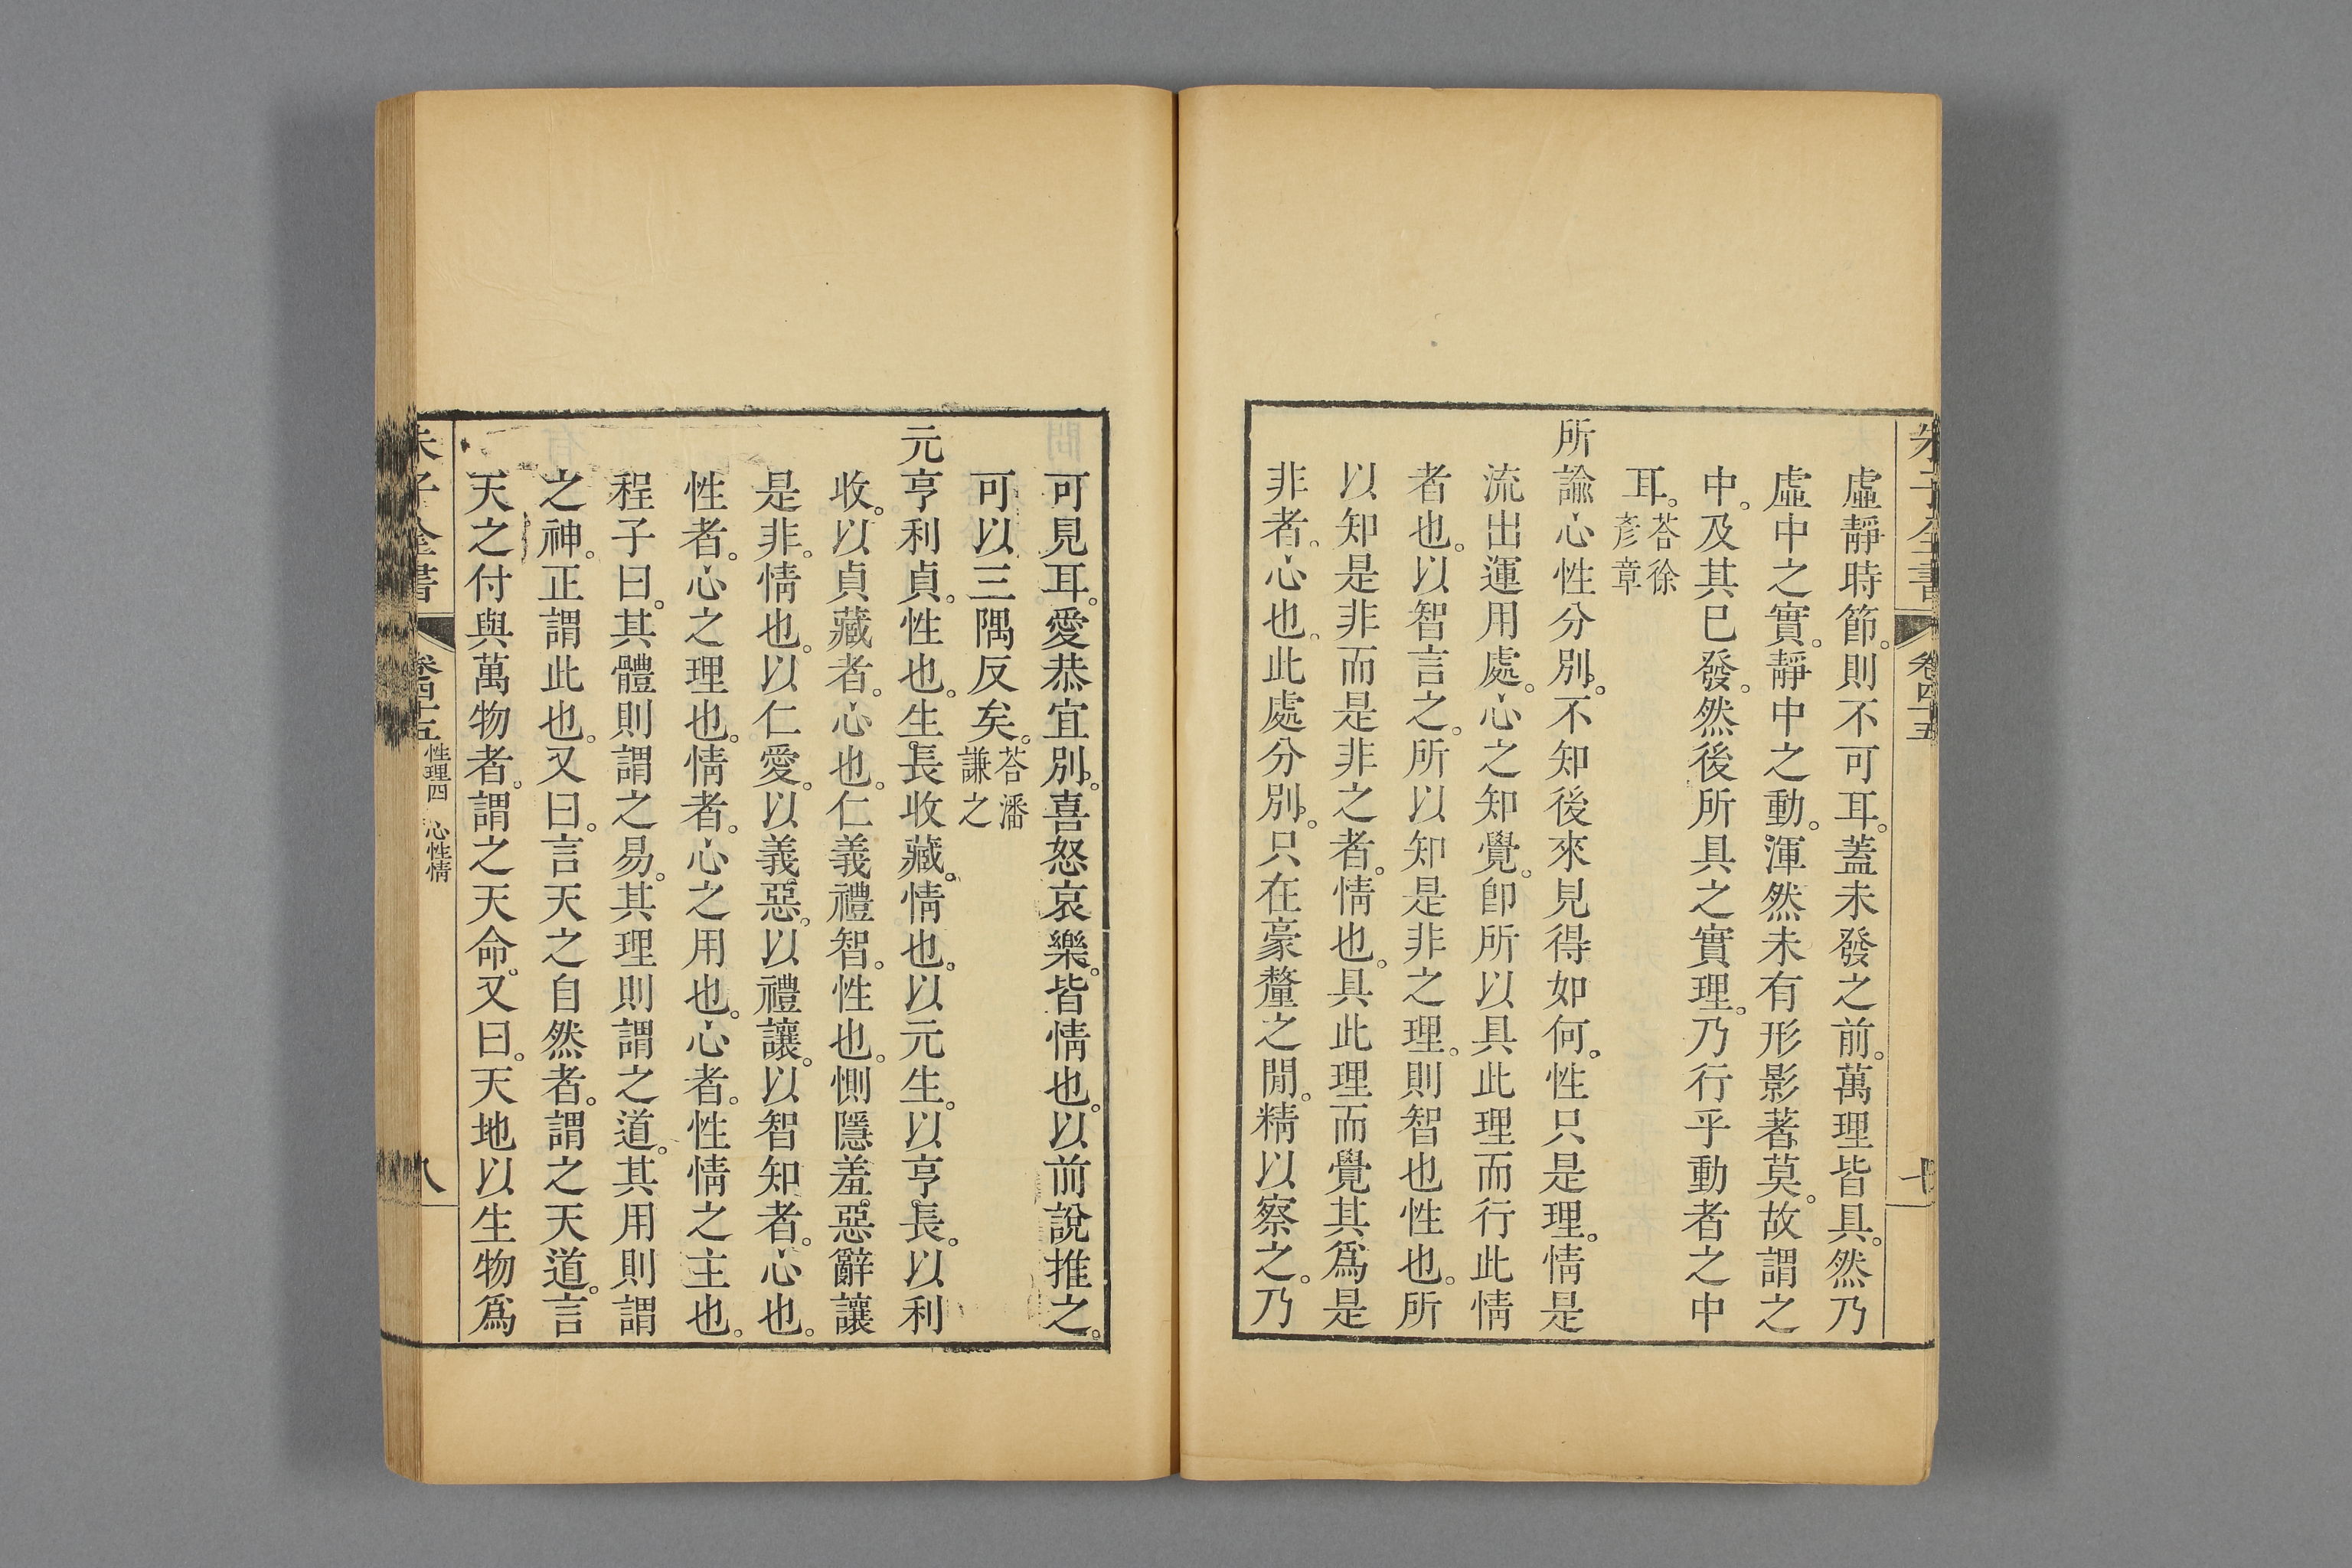 朱子全書 卷四十五 七
虛靜時節。則不可耳。蓋未發之前。萬理皆具。然乃
虛中之實。靜中之動。渾然未有形影著莫。故謂之
中。及其已發。然後所具之實理。乃行乎動者之中
耳。荅徐彥章
所諭心性分別。不知後來見得如何。性只是理。情是
流出運用處。心之知覺。卽所以具此理而行此情
者也。以智言之。所以知是非之理。則智也性也。所
以知是非而是非之者。情也。具此理而覺其爲是
非者。心也。此處分別。只在豪釐之閒。精以察之。乃
可見耳。愛恭宜別。喜怒哀樂。皆情也。以前說推之。
可以三隅反矣。荅潘謙之
元亨利貞。性也。生長收藏。情也。以元生。以亨長。以利
收。以貞藏者。心也。仁義禮智。性也。惻隱羞惡辭讓
是非。情也。以仁愛。以義惡。以禮讓。以智知者。心也。
性者。心之理也。情者。心之用也。心者。性情之主也。
程子曰。其體則謂之易。其理則謂之道。其用則謂
之神。正謂此也。又曰。言天之自然者。謂之天道。言
天之付與萬物者。謂之天命。又曰。天地以生物爲
朱子全書 卷四十五 性理四 心性情 八